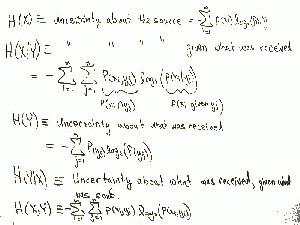 H(X) ≡ uncertainty about the source = Σ p(xi) log₂(p(xi))
H(X|Y) ≡ " " " " given what was received
= - Σ Σ P(xi,yj) log₂(P(xi|yj))
P(xi ∩ yj) P(xi given yj)
H(Y) ≡ Uncertainty about what was received
= - Σ P(yj) log₂(P(yj))
H(Y|X) ≡ Uncertainty about what was received, given what
was sent.
H(X,Y) ≡ - Σ Σ p(xi,yj) log₂(p(xi,yj))